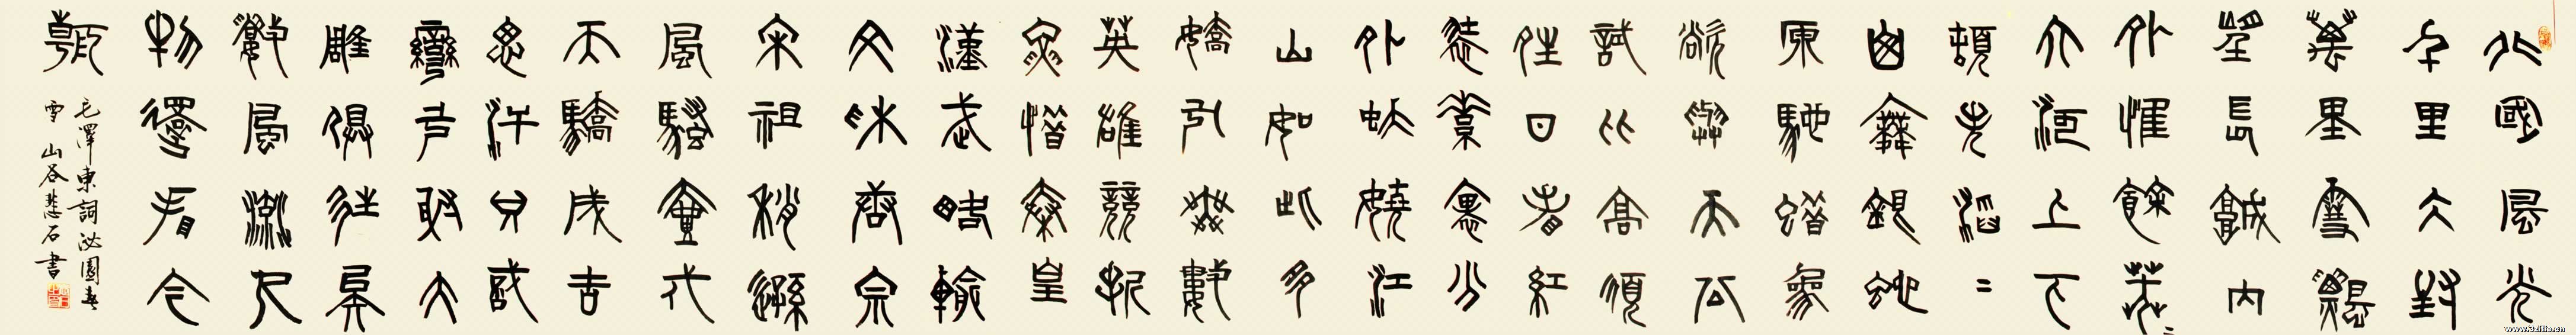 北國風光
千里冰封
萬里雪飄
望長城內
外惟餘莽〻
大河上下
頓失滔〻
山舞銀蛇
原馳蠟象
欲與天公
試比高須
晴日看紅
裝素裹分
外妖嬈江
山如此多
嬌引無數
英雄競折
腰惜秦皇
漢武略輸
文采唐宗
宋祖稍遜
風騷壹代
天驕成吉
思汗只識
彎弓射大
雕俱往矣
數風流人
物還看今
朝
毛澤東詞沁園春
雪 山谷悲石書